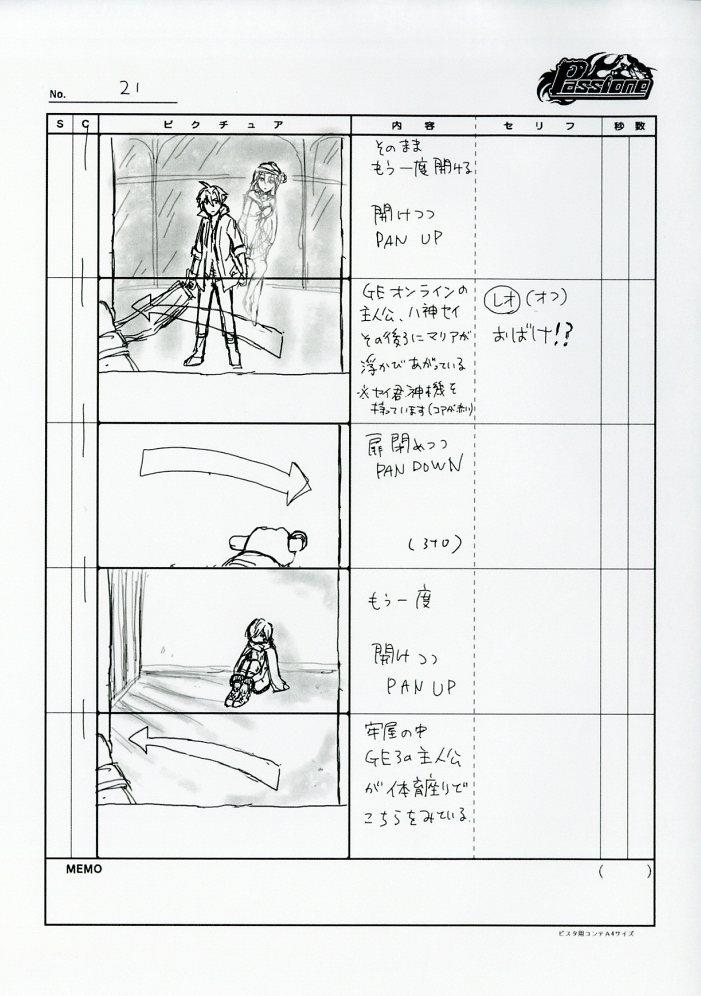 No. 21
Passione
S C ピクチュア 内容 セリフ 秒数
そのまま
もう一度開ける
開けつつ
PAN UP
GEオンラインの
主人公、八神セイ
その後ろにマリアが
浮かびあがっている
※セイ君神機を
持っています(コアが赤い)
レオ(オフ)
おばけ!?
扉閉めつつ
PAN DOWN
もう一度
開けつつ
PAN UP
牢屋の中
GE3の主人公
が体育座りで
こちらをみている。
MEMO ( )
ビスタ用コンテA4サイズ